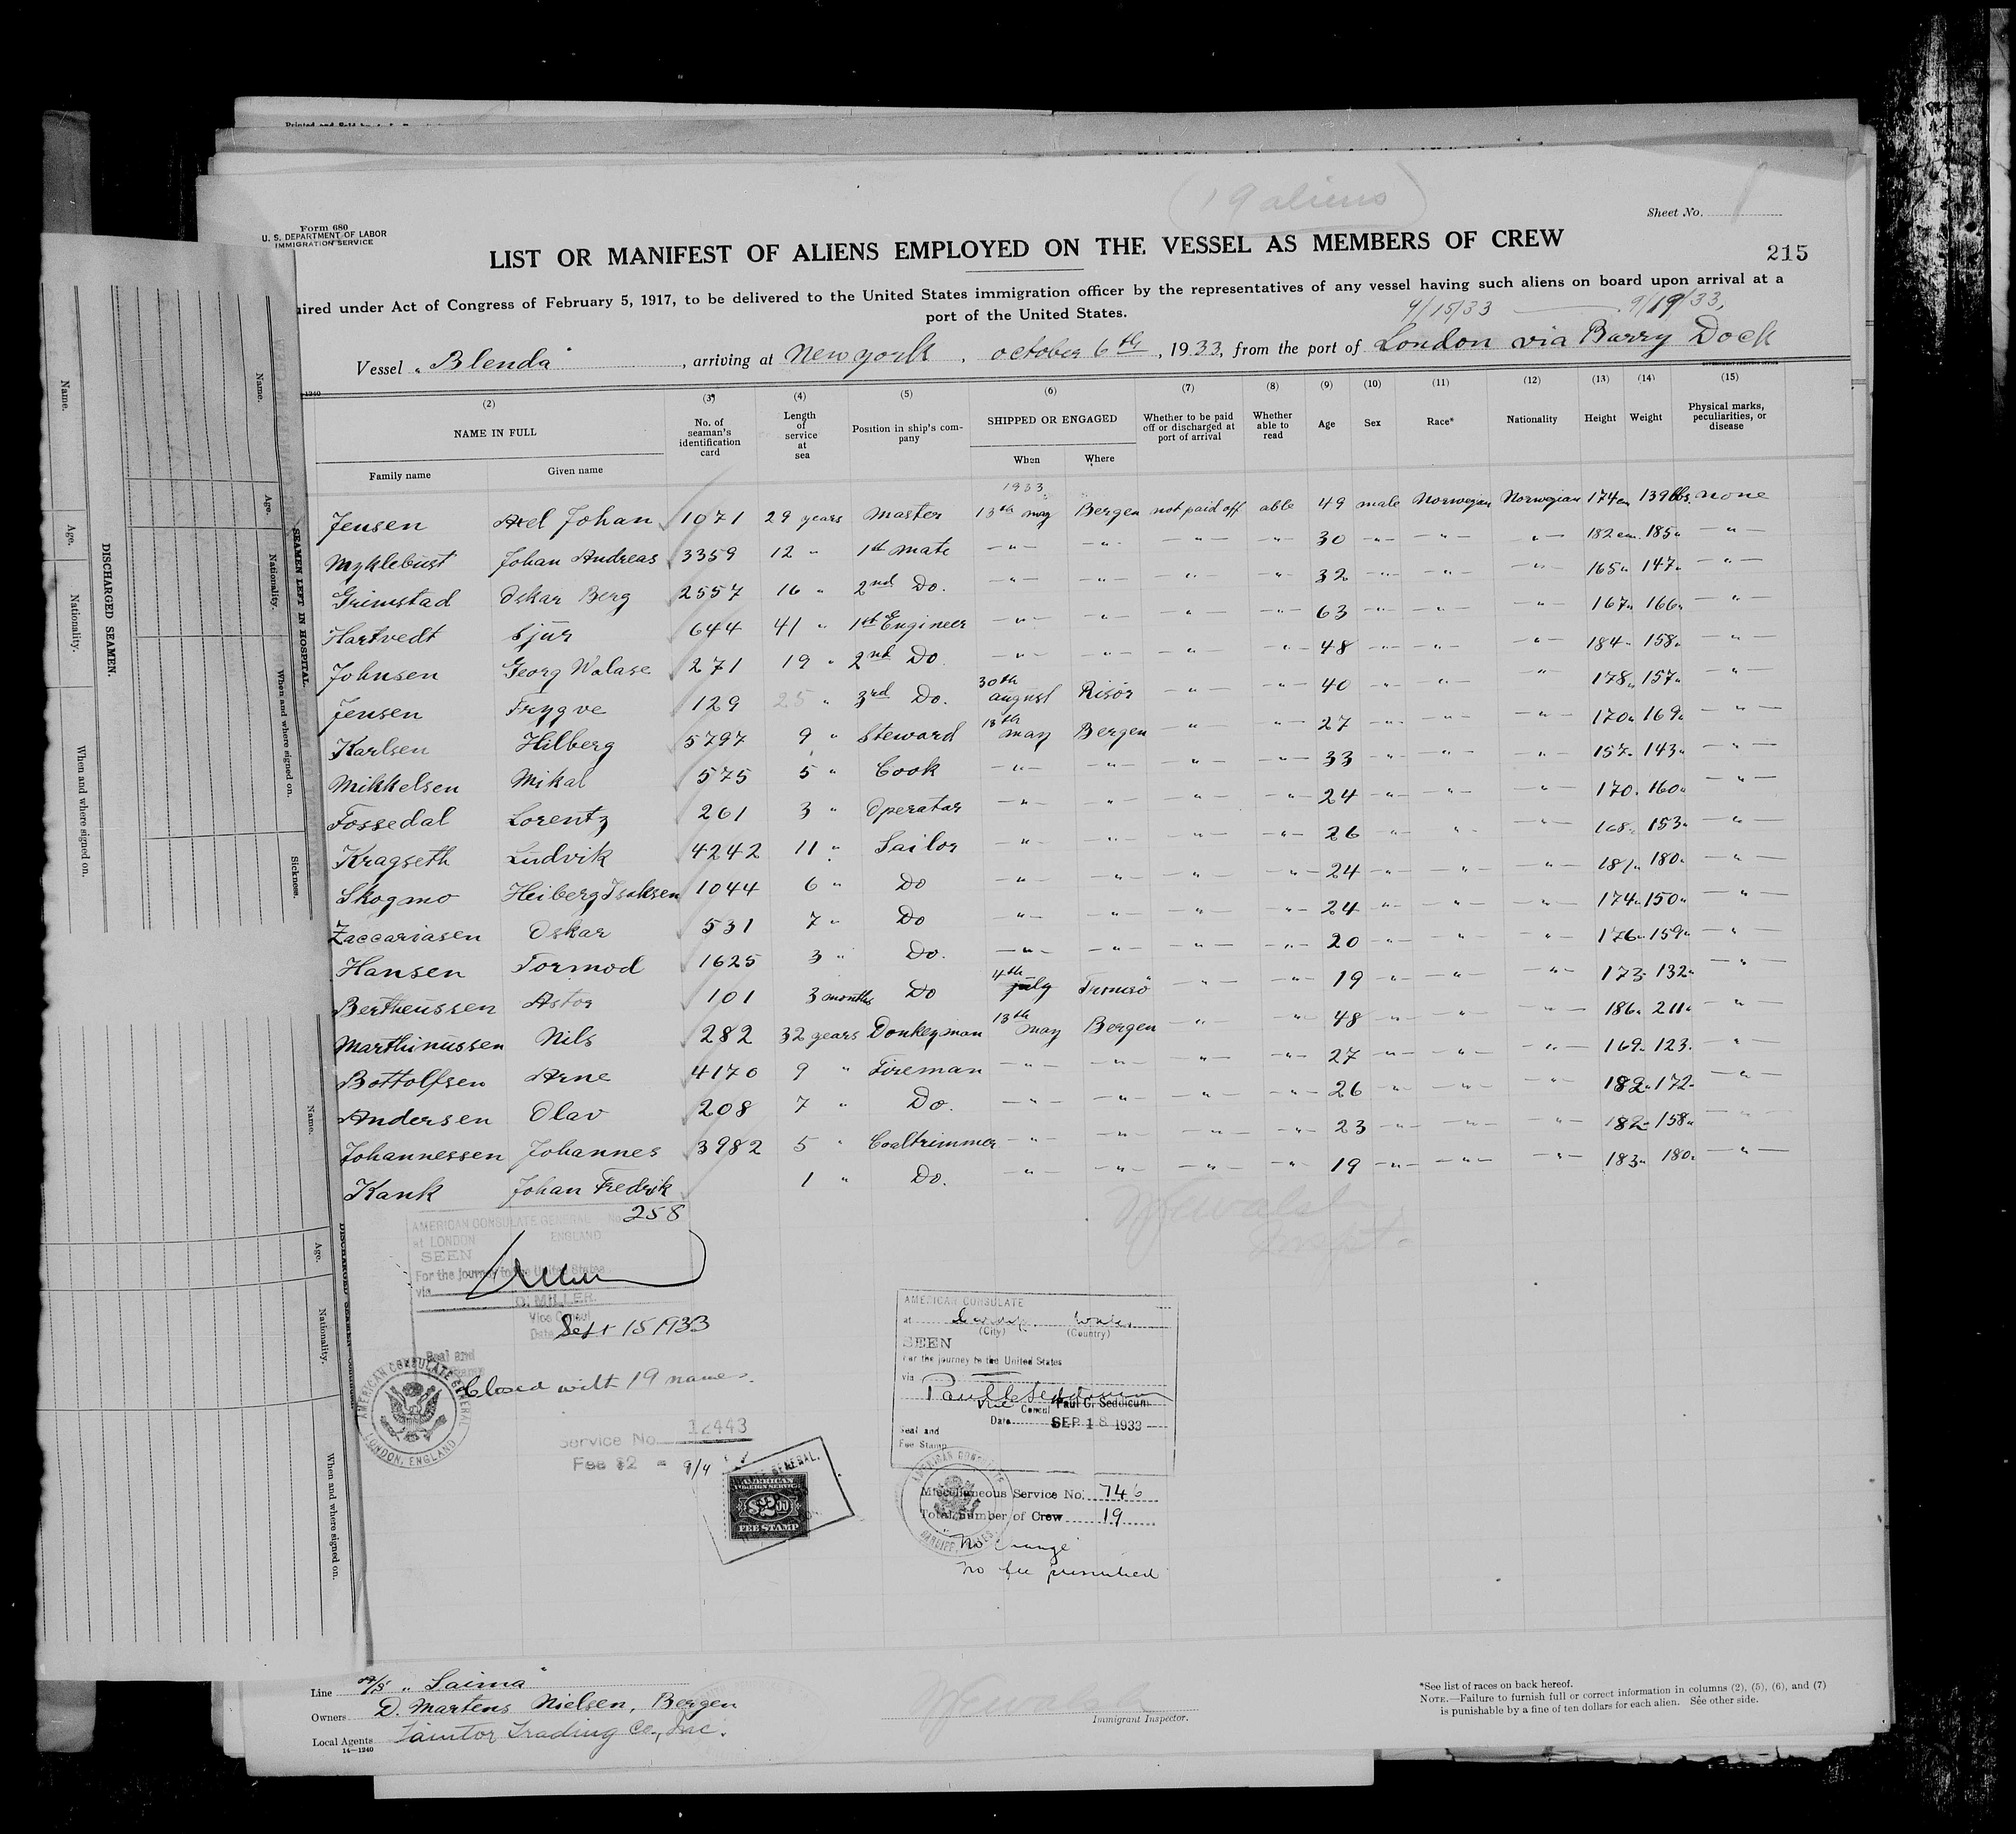 Printed and Sold by
(19 aliens)
Form 680
U. S. DEPARTMENT OF LABOR
IMMIGRATION SERVICE
Sheet No. 1
LIST OR MANIFEST OF ALIENS EMPLOYED ON THE VESSEL AS MEMBERS OF CREW
215
ired under Act of Congress of February 5, 1917, to be delivered to the United States immigration officer by the representatives of any vessel having such aliens on board upon arrival at a
port of the United States.
9/15/33 — 9/19/33,
Vessel "Blenda", arriving at New york, october 6th, 1933, from the port of London via Barry Dock
1240
(2) (3) (4) (5) (6) (7) (8) (9) (10) (11) (12) (13) (14) (15)
NAME IN FULL No. of seaman's identification card Length of service at sea Position in ship's company SHIPPED OR ENGAGED Whether to be paid off or discharged at port of arrival Whether able to read Age Sex Race* Nationality Height Weight Physical marks, peculiarities, or disease
Family name Given name When Where
1933
Jensen Axel Johan 1071 29 years Master 13th may Bergen not paid off able 49 male Norwegian Norwegian 174cm 139lbs. none
Myklebust Johan Andreas 3359 12 " 1st mate —"— —"— —"— —"— 30 —"— —"— "— 182cm. 185" —"—
Grimstad Oskar Berg 2557 16 " 2nd Do. —"— —"— —"— —"— 32 —"— —"— —"— 165" 147" —"—
Hartvedt Sjur 644 41 " 1st Engineer —"— —"— —"— —"— 63 —"— —"— —"— 167" 166" —"—
Johnsen Georg Walase 271 19 " 2nd Do —"— —"— —"— —"— 48 —"— —"— —"— 184" 158" —"—
Jensen Trygve 129 25 " 3rd Do. 30th august Risör —"— —"— 40 —"— —"— —"— 178" 157" —"—
Karlsen Hilberg 5797 9 " Steward 13th may Bergen —"— —"— 27 —"— —"— —"— 170" 169" —"—
Mikkelsen Mikal 575 5 " Cook —"— —"— —"— —"— 33 —"— —"— —"— 157" 143" —"—
Fossedal Lorentz 261 3 " Operator —"— —"— —"— —"— 24 —"— —"— —"— 170" 160" —"—
Kragseth Ludvik 4242 11 " Sailor —"— —"— —"— —"— 26 —"— —"— —"— 168" 153" —"—
Skogmo Heiberg Isaksen 1044 6 " Do —"— —"— —"— —"— 24 —"— —"— —"— 181" 180" —"—
Zaccariasen Oskar 531 7 " Do —"— —"— —"— —"— 24 —"— —"— —"— 174" 150" —"—
Hansen Tormod 1625 3 " Do. —"— —"— —"— —"— 20 —"— —"— —"— 176" 159" —"—
Bertheussen Astor 101 3 months Do 4th july Tromsö —"— —"— 19 —"— —"— —"— 173" 132" —"—
Marthinussen Nils 282 32 years Donkeyman 13th may Bergen —"— —"— 48 —"— —"— —"— 186" 211" —"—
Bottolfsen Arne 4170 9 " Fireman —"— —"— —"— —"— 27 —"— —"— —"— 169" 123" —"—
Andersen Olav 208 7 " Do. —"— —"— —"— —"— 26 —"— —"— —"— 182" 172" —"—
Johannessen Johannes 3982 5 " Coaltrimmer —"— —"— —"— —"— 23 —"— —"— —"— 182" 158" —"—
Kank Johan Fredrik 1 " Do. —"— —"— —"— —"— 19 —"— —"— —"— 183" 180" —"—
AMERICAN CONSULATE GENERAL No. 258
at LONDON ENGLAND
SEEN
For the journey to the United States
via
D. MILLER.
Vice Consul
Date Sept 15 1933
Seal and
AMERICAN CONSULATE GENERAL
LONDON, ENGLAND
Closed with 19 names.
Service No. 12443
Fee $2 = 9/4
AMERICAN
FOREIGN SERVICE
$2.00
FEE STAMP
AMERICAN CONSULATE
at Cardiff Wales
(City) (Country)
SEEN
For the journey to the United States
via
Vice Consul Paul C. Seddicum
Date SEP 18 1933
Seal and
Fee Stamp
AMERICAN CONSULATE
CARDIFF, WALES
Miscellaneous Service No. 746
Total number of Crew 19
"No change"
No fee prescribed
Line A/S "Saima"
Owners D. Martens Nielsen, Bergen
Local Agents Taintor Trading Co., Inc.
14—1240
Immigrant Inspector.
*See list of races on back hereof.
NOTE.—Failure to furnish full or correct information in columns (2), (5), (6), and (7)
is punishable by a fine of ten dollars for each alien. See other side.
DISCHARGED SEAMEN.
Name. Age. Nationality. When and where signed on.
SEAMEN LEFT IN HOSPITAL.
Name. Age. Nationality. When and where signed on. Sickness.
Name. Age. Nationality. When and where signed on.